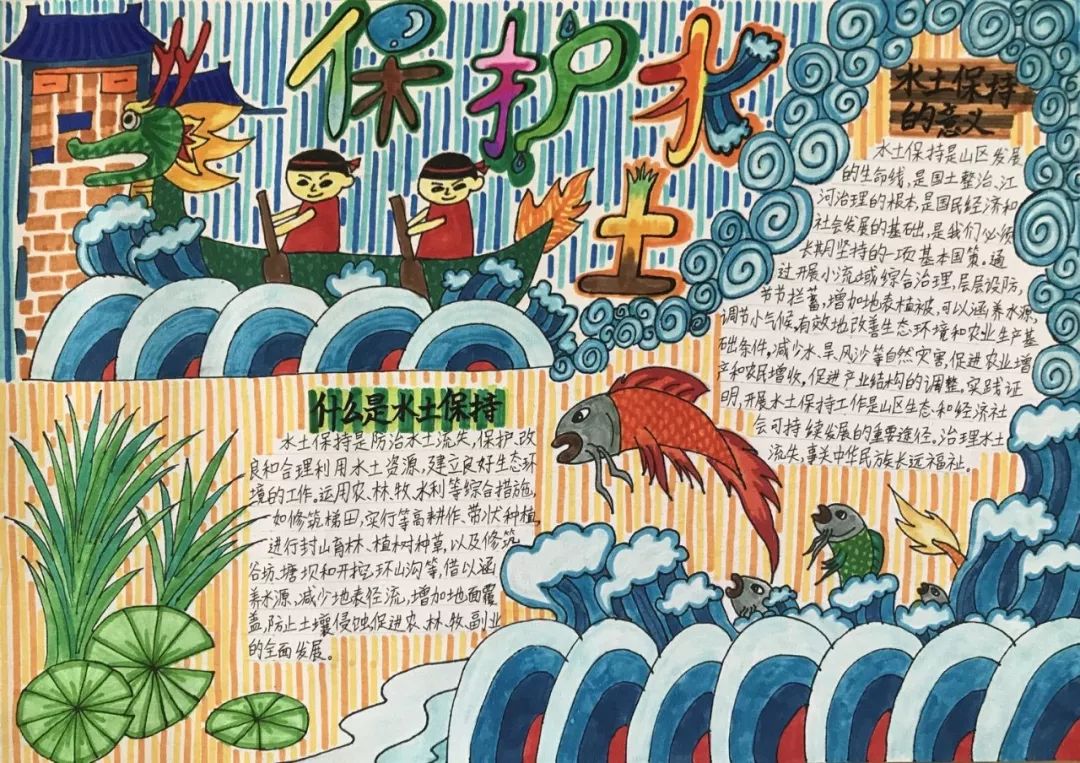 保护水土
水土保持
的意义
水土保持是山区发展
的生命线,是国土整治、江
河治理的根本,是国民经济和
社会发展的基础,是我们必须
长期坚持的一项基本国策。通
过开展小流域综合治理,层层设防,
节节拦蓄,增加地表植被,可以涵养水源,
调节小气候,有效地改善生态环境和农业生产基
础条件,减少水、旱、风沙等自然灾害,促进农业增
产和农民增收,促进产业结构的调整。实践证
明,开展水土保持工作是山区生态和经济社
会可持续发展的重要途径。治理水土
流失,事关中华民族长远福祉。
什么是水土保持
水土保持是防治水土流失,保护、改
良和合理利用水土资源,建立良好生态环
境的工作。运用农、林、牧、水利等综合措施,
如修筑梯田,实行等高耕作、带状种植,
进行封山育林、植树种草,以及修筑
谷坊、塘坝和开挖环山沟等,借以涵
养水源,减少地表径流,增加地面覆
盖,防止土壤侵蚀,促进农、林、牧、副业
的全面发展。